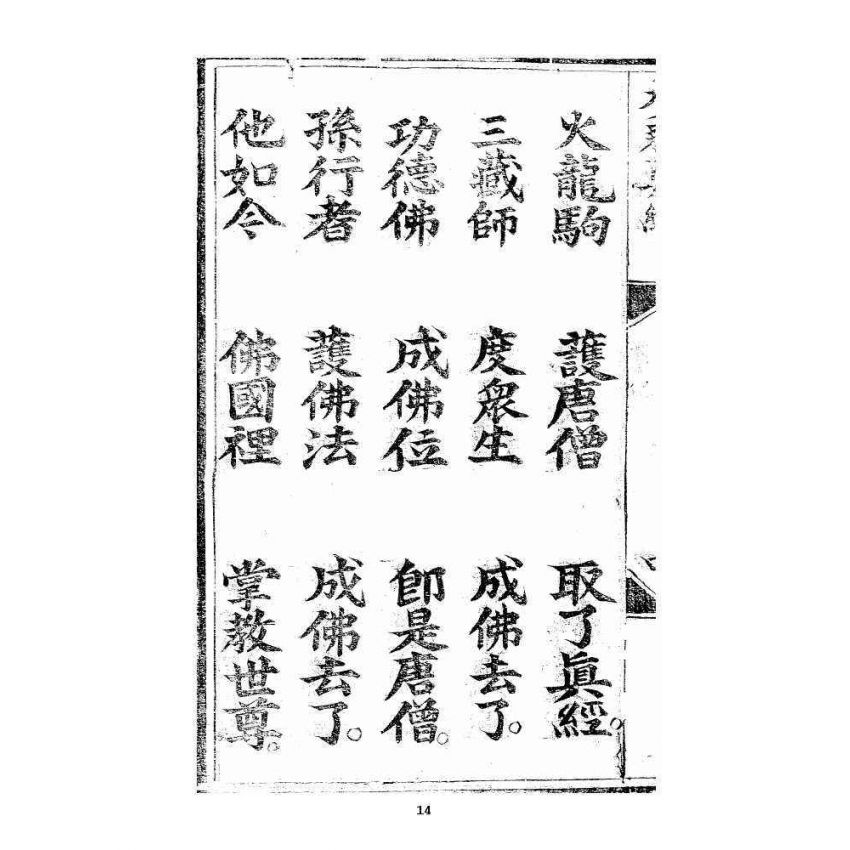 火龍駒 護唐僧 取了眞經。
三藏師 度衆生 成佛去了。
功德佛 成佛位 卽是唐僧。
孫行者 護佛法 成佛去了。
他如今 佛國裡 掌教世尊。
14